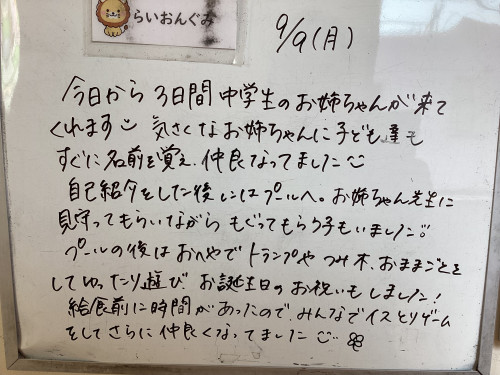 らいおんぐみ
9/9(月)
今日から3日間中学生のお姉ちゃんが来て
くれます 気さくなお姉ちゃんに子ども達も
すぐに名前を覚え、仲良なってました
自己紹介をした後にはプールへ。お姉ちゃん先生に
見守ってもらいながら もぐってもらう子もいました
プールの後はおへやでトランプやつみ木、おままごとを
してゆったり遊び お誕生日のお祝いもしました!
給食前に時間があったので、みんなでイスとりゲーム
をしてさらに仲良くなってました